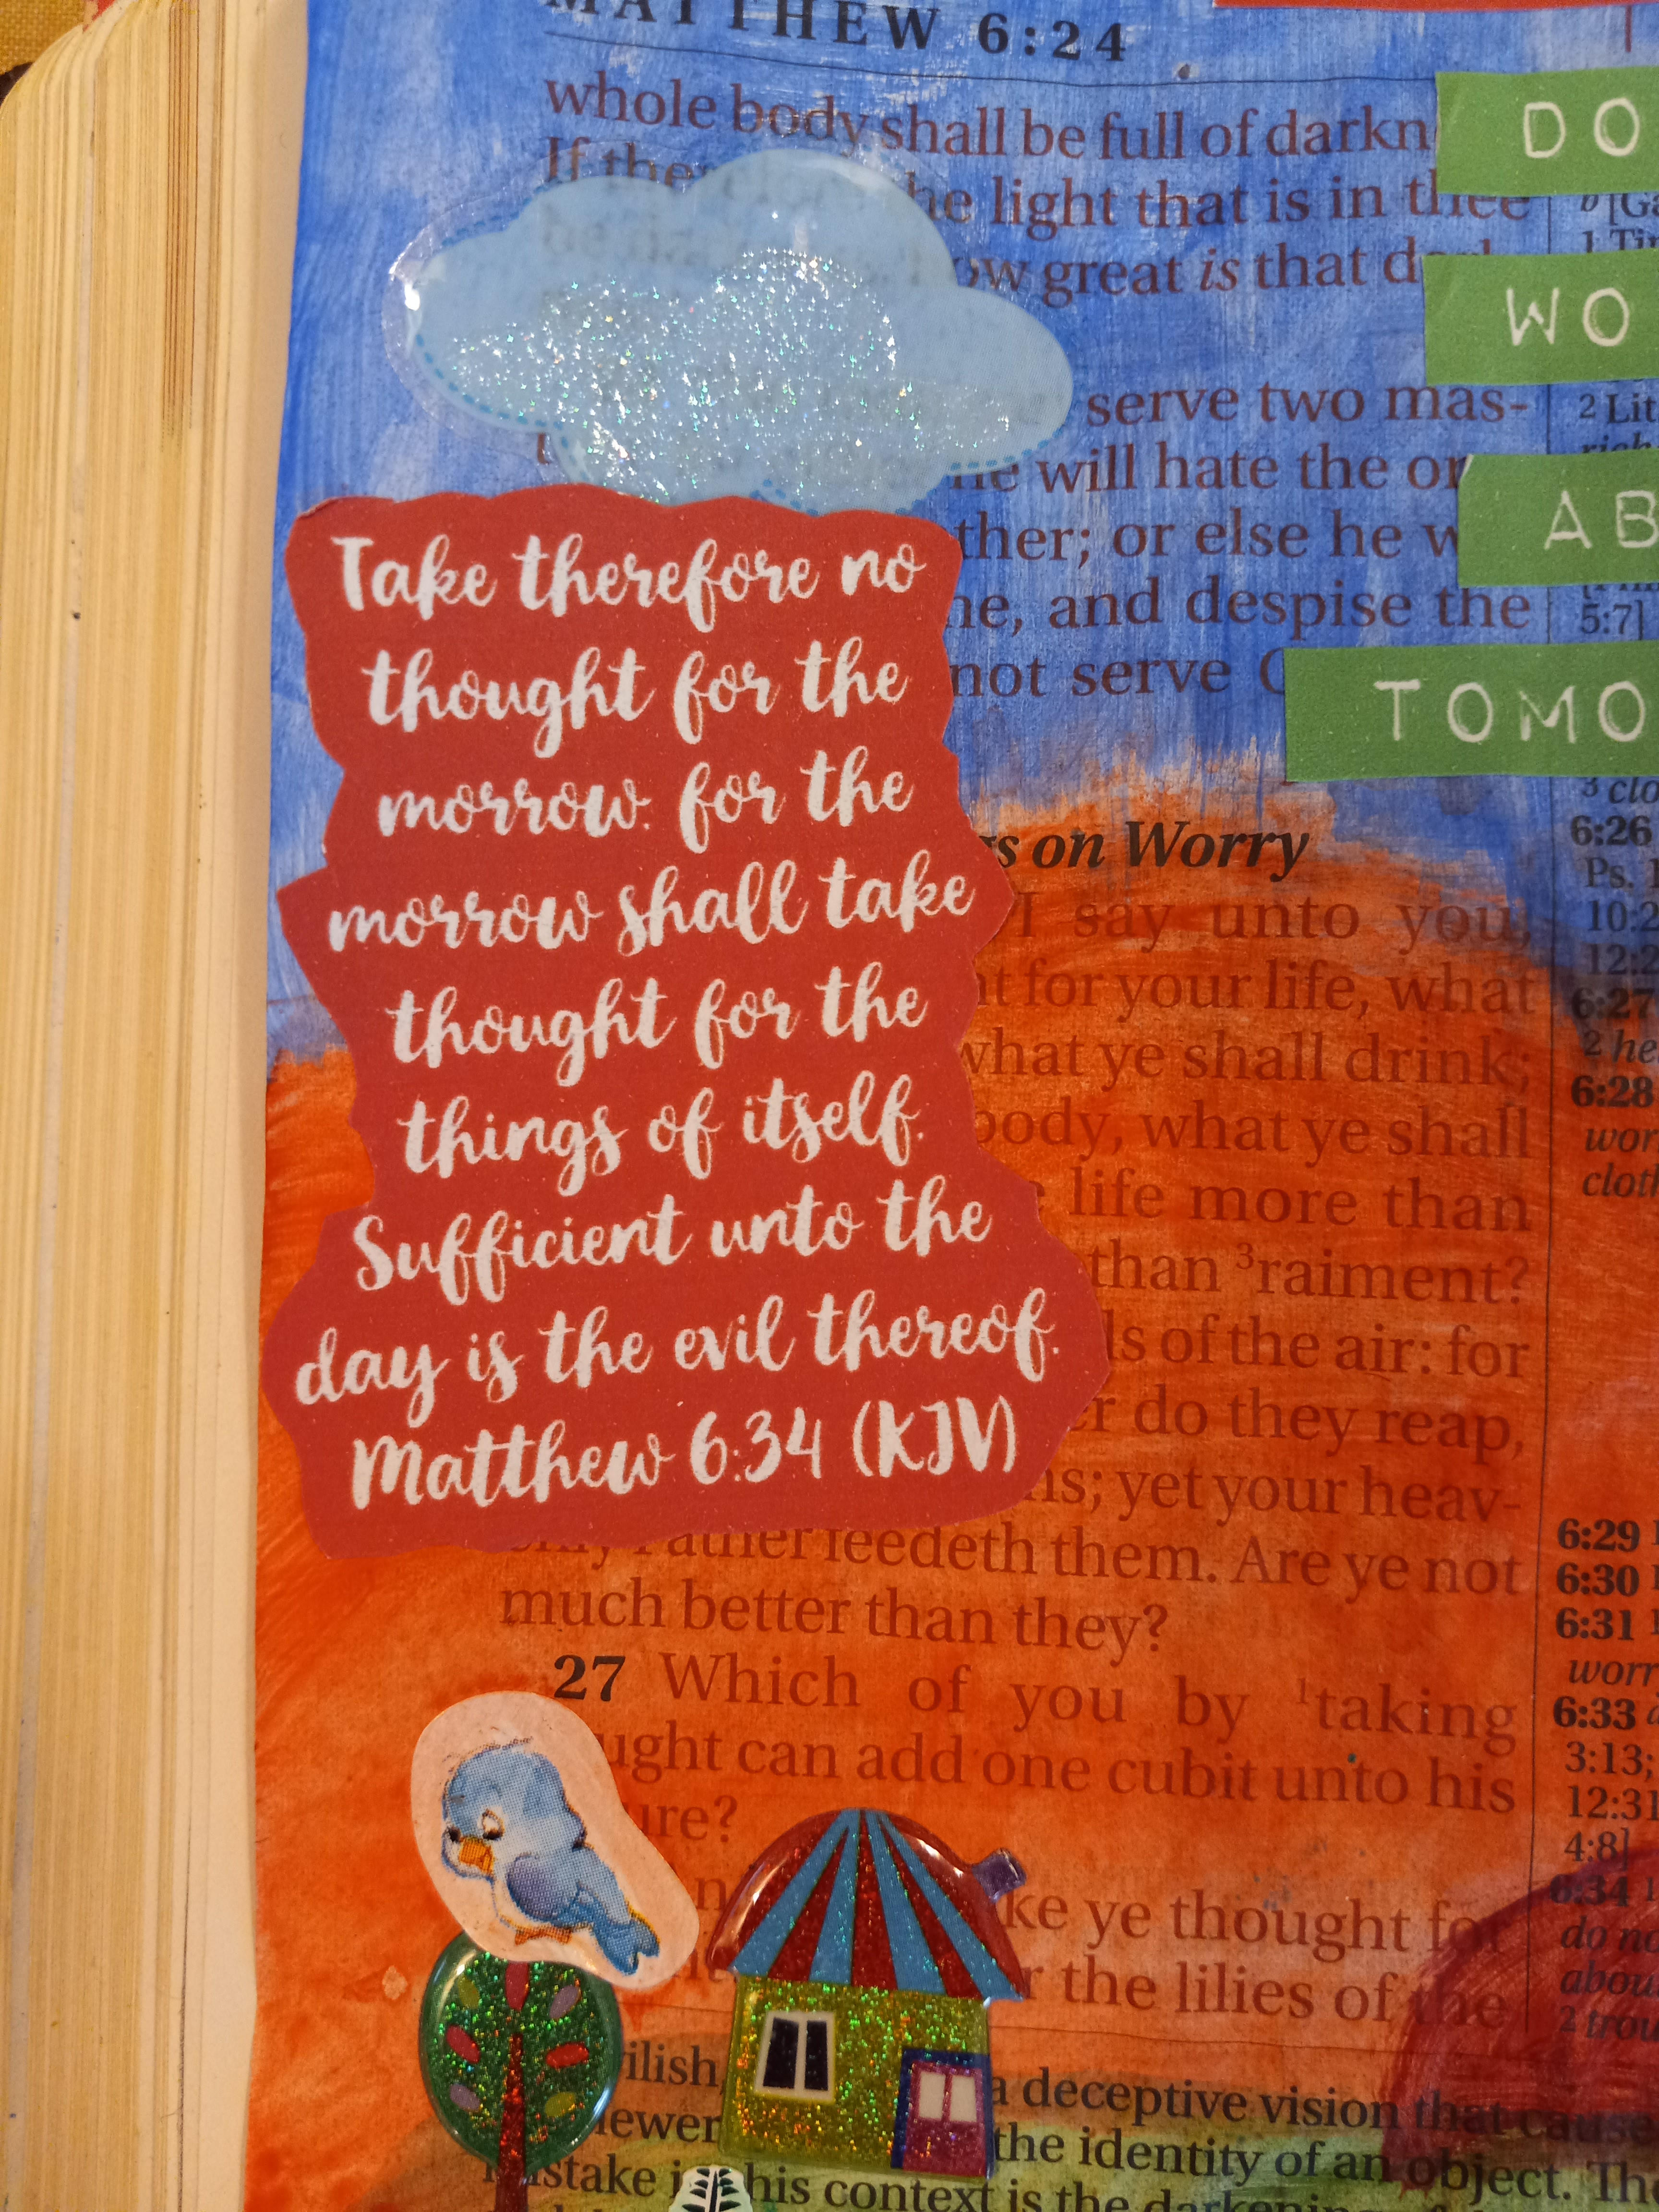 MATTHEW 6:24
whole body shall be full of darkn
If the he light that is in thee
ow great is that
serve two mas-
he will hate the
ther; or else he
and despise the
not serve
Take therefore no
thought for the
morrow: for the
morrow shall take
thought for the
things of itself.
Sufficient unto the
day is the evil thereof.
Matthew 6:34 (KJV)
DO
WO
AB
TOMO
on Worry
I say unto you,
for your life, what
what ye shall drink;
body, what ye shall
life more than
than ³raiment?
of the air: for
do they reap,
yet your heav-
enly Father feedeth them. Are ye not
much better than they?
27 Which of you by ¹taking
ught can add one cubit unto his
ure?
ke ye thought for
the lilies of the
a deceptive vision that cause
the identity of an object.
his context is the darkening
1 Tim
2 Lit
5:7]
3 clo
6:26
Ps. 1
10:2
12:2
6:27
2 he
6:28
wor
cloth
6:29
6:30
6:31
worr
6:33
3:13;
12:31
4:8]
6:34
do no
abou
2 trou